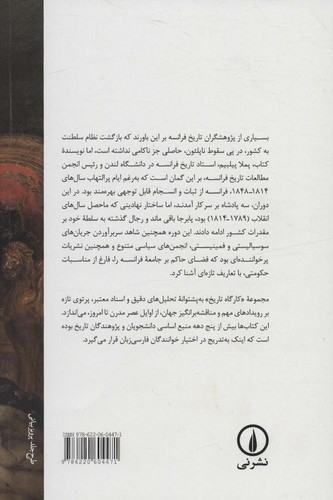 بسیاری از پژوهشگران تاریخ فرانسه بر این باورند که بازگشت نظام سلطنت
به کشور، در پی سقوط ناپلئون، حاصلی جز ناکامی نداشته است، اما نویسندهٔ
کتاب، پملا پیلبیم، استاد تاریخ فرانسه در دانشگاه لندن و رئیس انجمن
مطالعات تاریخ فرانسه، بر این گمان است که به‌رغم ایام پرالتهاب سال‌های
۱۸۱۴-۱۸۴۸، فرانسه از ثبات و انسجام قابل توجهی بهره‌مند بود. در این
دوران، سه پادشاه بر سر کار آمدند، اما ساختار نهادینی که ماحصل سال‌های
انقلاب (۱۷۸۹-۱۸۱۴) بود، پابرجا باقی ماند و رجال گذشته به سلطهٔ خود بر
مقدرات کشور ادامه دادند. این دوره همچنین شاهد سربرآوردن جریان‌های
سوسیالیستی و فمینیستی، انجمن‌های سیاسی متنوع و همچنین نشریات
پرخواننده‌ای بود که فضای حاکم بر جامعهٔ فرانسه را، فارغ از مناسبات
حکومتی، با تعاریف تازه‌ای آشنا کرد.
مجموعهٔ «کارگاه تاریخ» به‌پشتوانهٔ تحلیل‌های دقیق و اسناد معتبر، پرتوی تازه
بر رویدادهای مهم و مناقشه‌برانگیز جهان، از اوایل عصر مدرن تا امروز، می‌اندازد.
این کتاب‌ها بیش از پنج دهه منبع اساسی دانشجویان و پژوهندگان تاریخ بوده
است که اینک به‌تدریج در اختیار خوانندگان فارسی‌زبان قرار می‌گیرد.
ISBN 978-622-06-0447-1
9 786220 604471
نشرنی
طرح جلد: پرویز بیانی